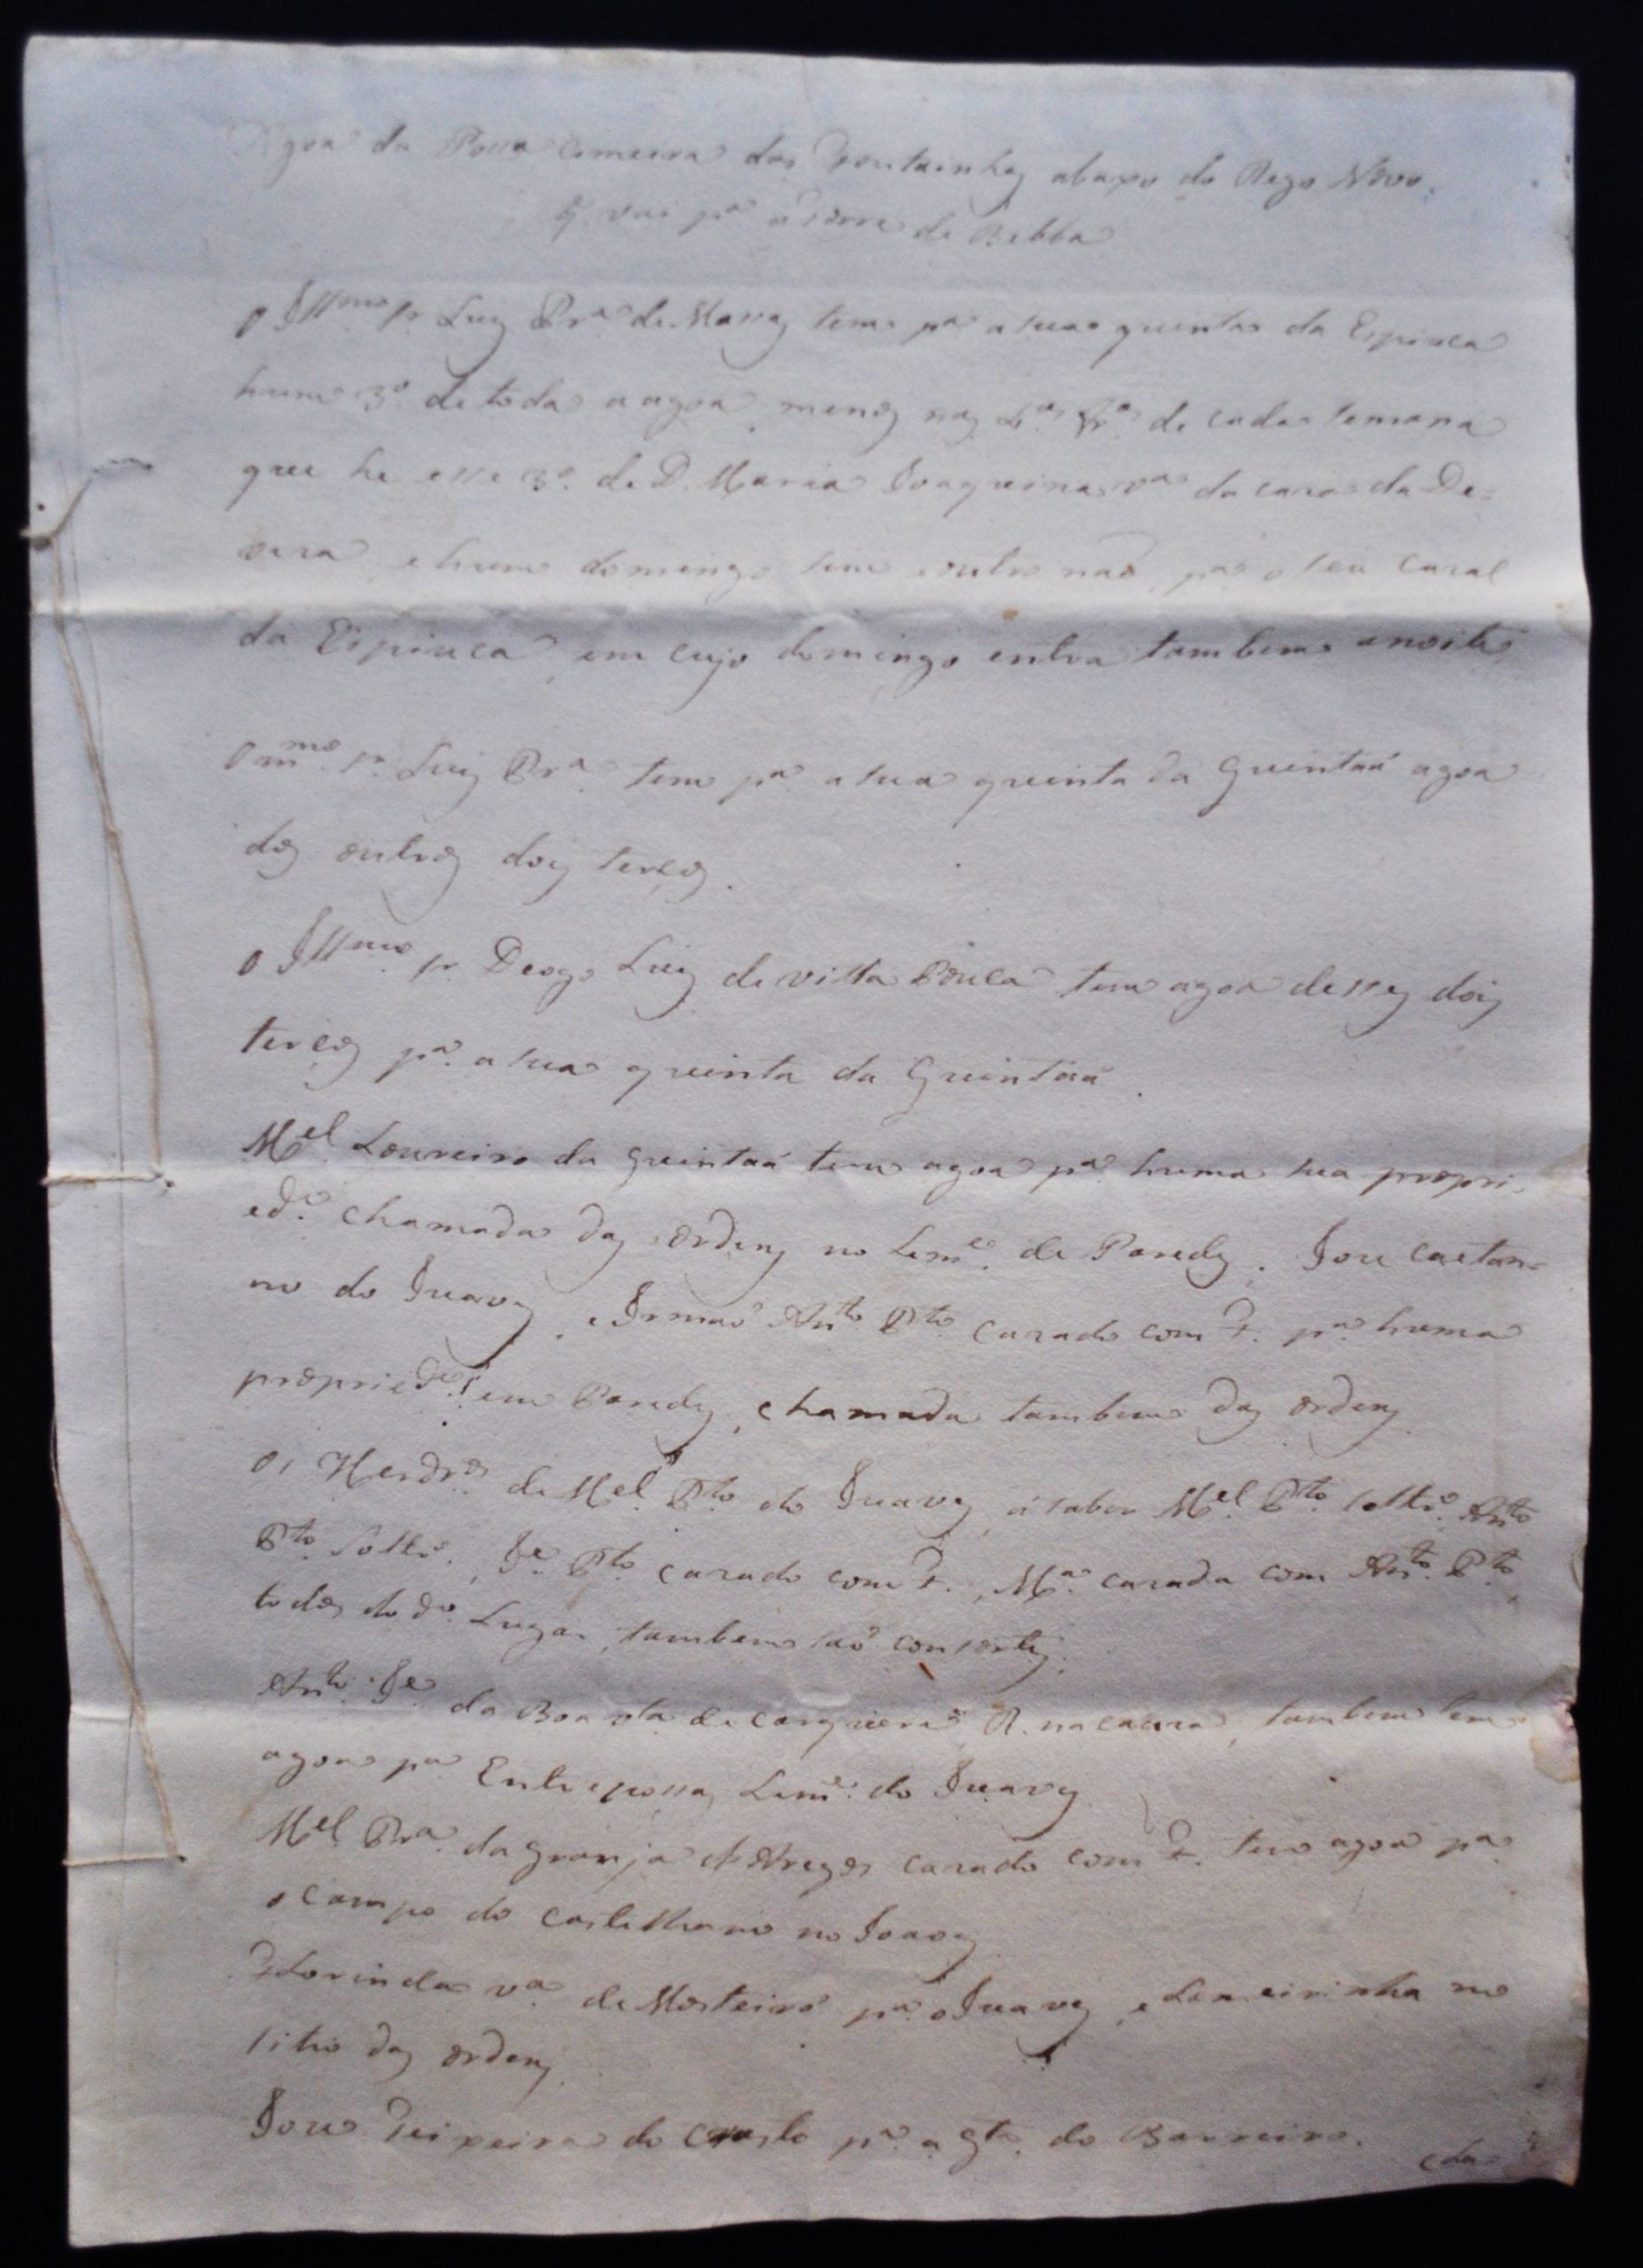 Agoa da Possa Cimeira das Fontainhas abaxo do Rego Novo.
q. vai pa. a Torre de Bebba
O Illmo. Sr. Luiz Pra. de Moraes tem pa. a sua quinta da Espiuca
hum 3o. de toda a agoa, menos nas 4as. fras. de cada semana
que he esse 3o. de D. Maria Joaquina va. da casa da De-
veza, e hum domingo sim e outro não, pa. o seu casal
da Espiuca, em cujo domingo entra tambem a noite
O mmo. Sr. Luiz Pra. tem pa. a sua quinta da Quintaã agoa
dos outros dois terços.
O Illmo. Sr. Deogo Luiz de Villa Pouca tem agoa desses dois
terços pa. a sua quinta da Quintaã.
Mel. Loureiro da Quintaã tem agoa pa. huma sua propri-
ede. chamada das Ordens no Leme. de Paredes. Joze Caetan-
no do Juaves, e Irmaõ Anto. Pto. cazado com F. pa. huma
propriede. em Paredes, chamada tambem das Ordens
Os Herdros. de Mel. Pto. do Juaves, á saber Mel. Pto. soltro. Anto.
Pto. soltro., Je. Pto. cazado com F., Ma. cazada com Anto. Pto.
todos do do. Lugar, tambem saõ consortes.
Anto. Je. da Boa vta. de Corguera R. na cauza, tambem tem
agoa pa. Entre possas, Leme. do Juaves
Mel. Pra. da Granja de Aregos cazado com F. tem agoa pa.
o campo do Castelhano no Joaves
Florinda va. de Mosteirô pa. o Juaves, e Lameirinha no
sitio das Ordens.
Joze Teixeira do Crasto pa. a Qta. do Barreiro.